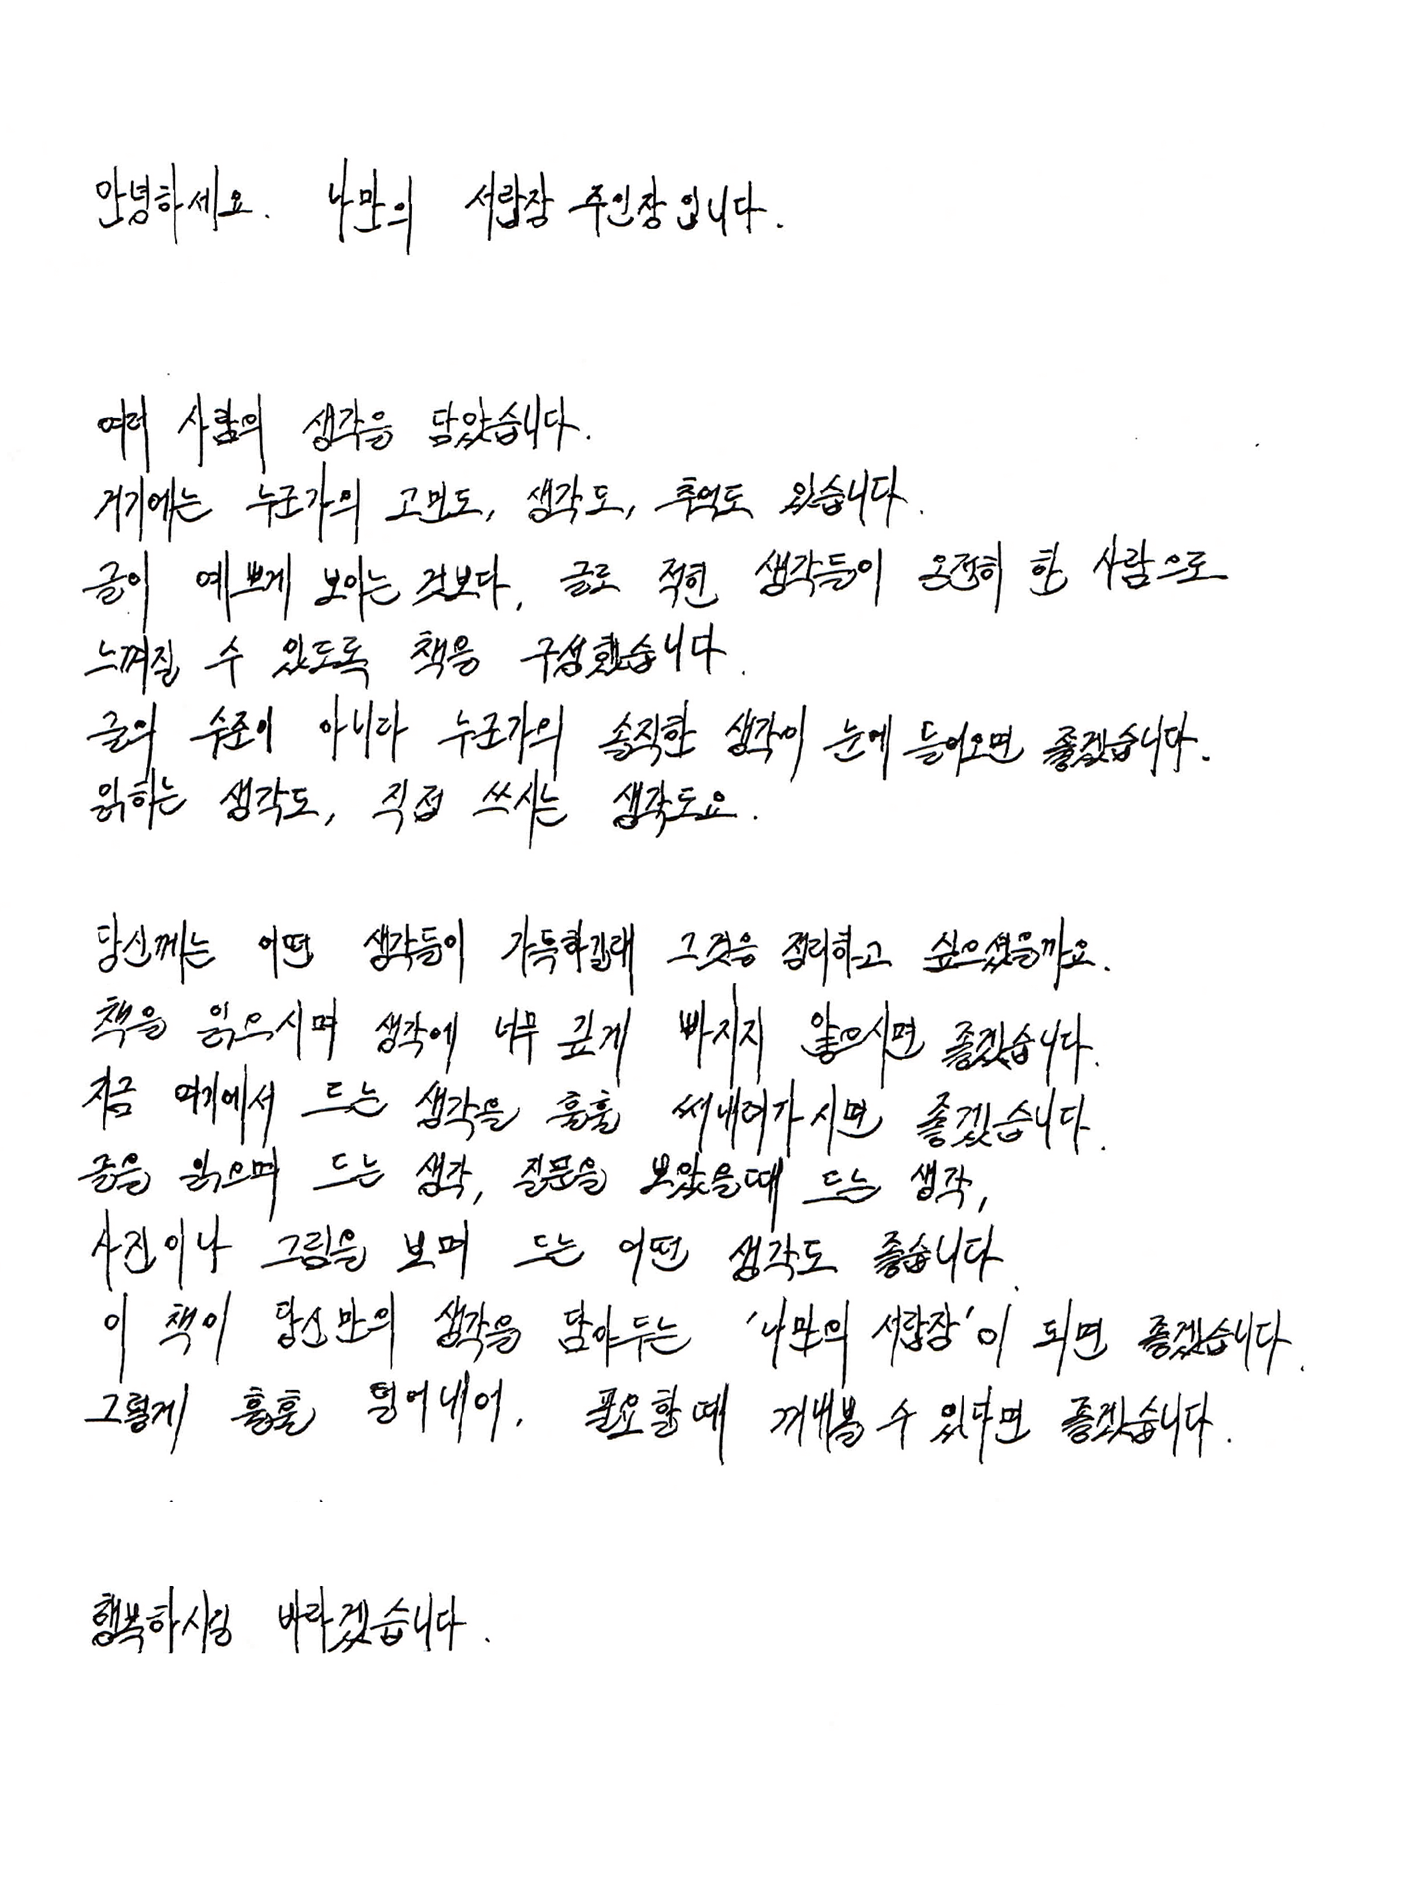 안녕하세요. 나만의 서랍장 주인장입니다.
여러 사람의 생각을 담았습니다.
거기에는 누군가의 고민도, 생각도, 추억도 있습니다.
글이 예쁘게 보이는 것보다, 글로 적힌 생각들이 온전히 한 사람으로
느껴질 수 있도록 책을 구성했습니다.
글의 수준이 아니라 누군가의 솔직한 생각이 눈에 들어오면 좋겠습니다.
읽히는 생각도, 직접 쓰시는 생각도요.
당신께는 어떤 생각들이 가득하길래 그것을 정리하고 싶으셨을까요.
책을 읽으시며 생각에 너무 깊게 빠지지 않으시면 좋겠습니다.
지금 여기에서 드는 생각을 훌훌 써내려가시면 좋겠습니다.
글을 읽으며 드는 생각, 질문을 보았을때 드는 생각,
사진이나 그림을 보며 드는 어떤 생각도 좋습니다.
이 책이 당신만의 생각을 담아두는 '나만의 서랍장'이 되면 좋겠습니다.
그렇게 훌훌 털어내어, 필요할때 꺼내볼 수 있다면 좋겠습니다.
행복하시길 바라겠습니다.